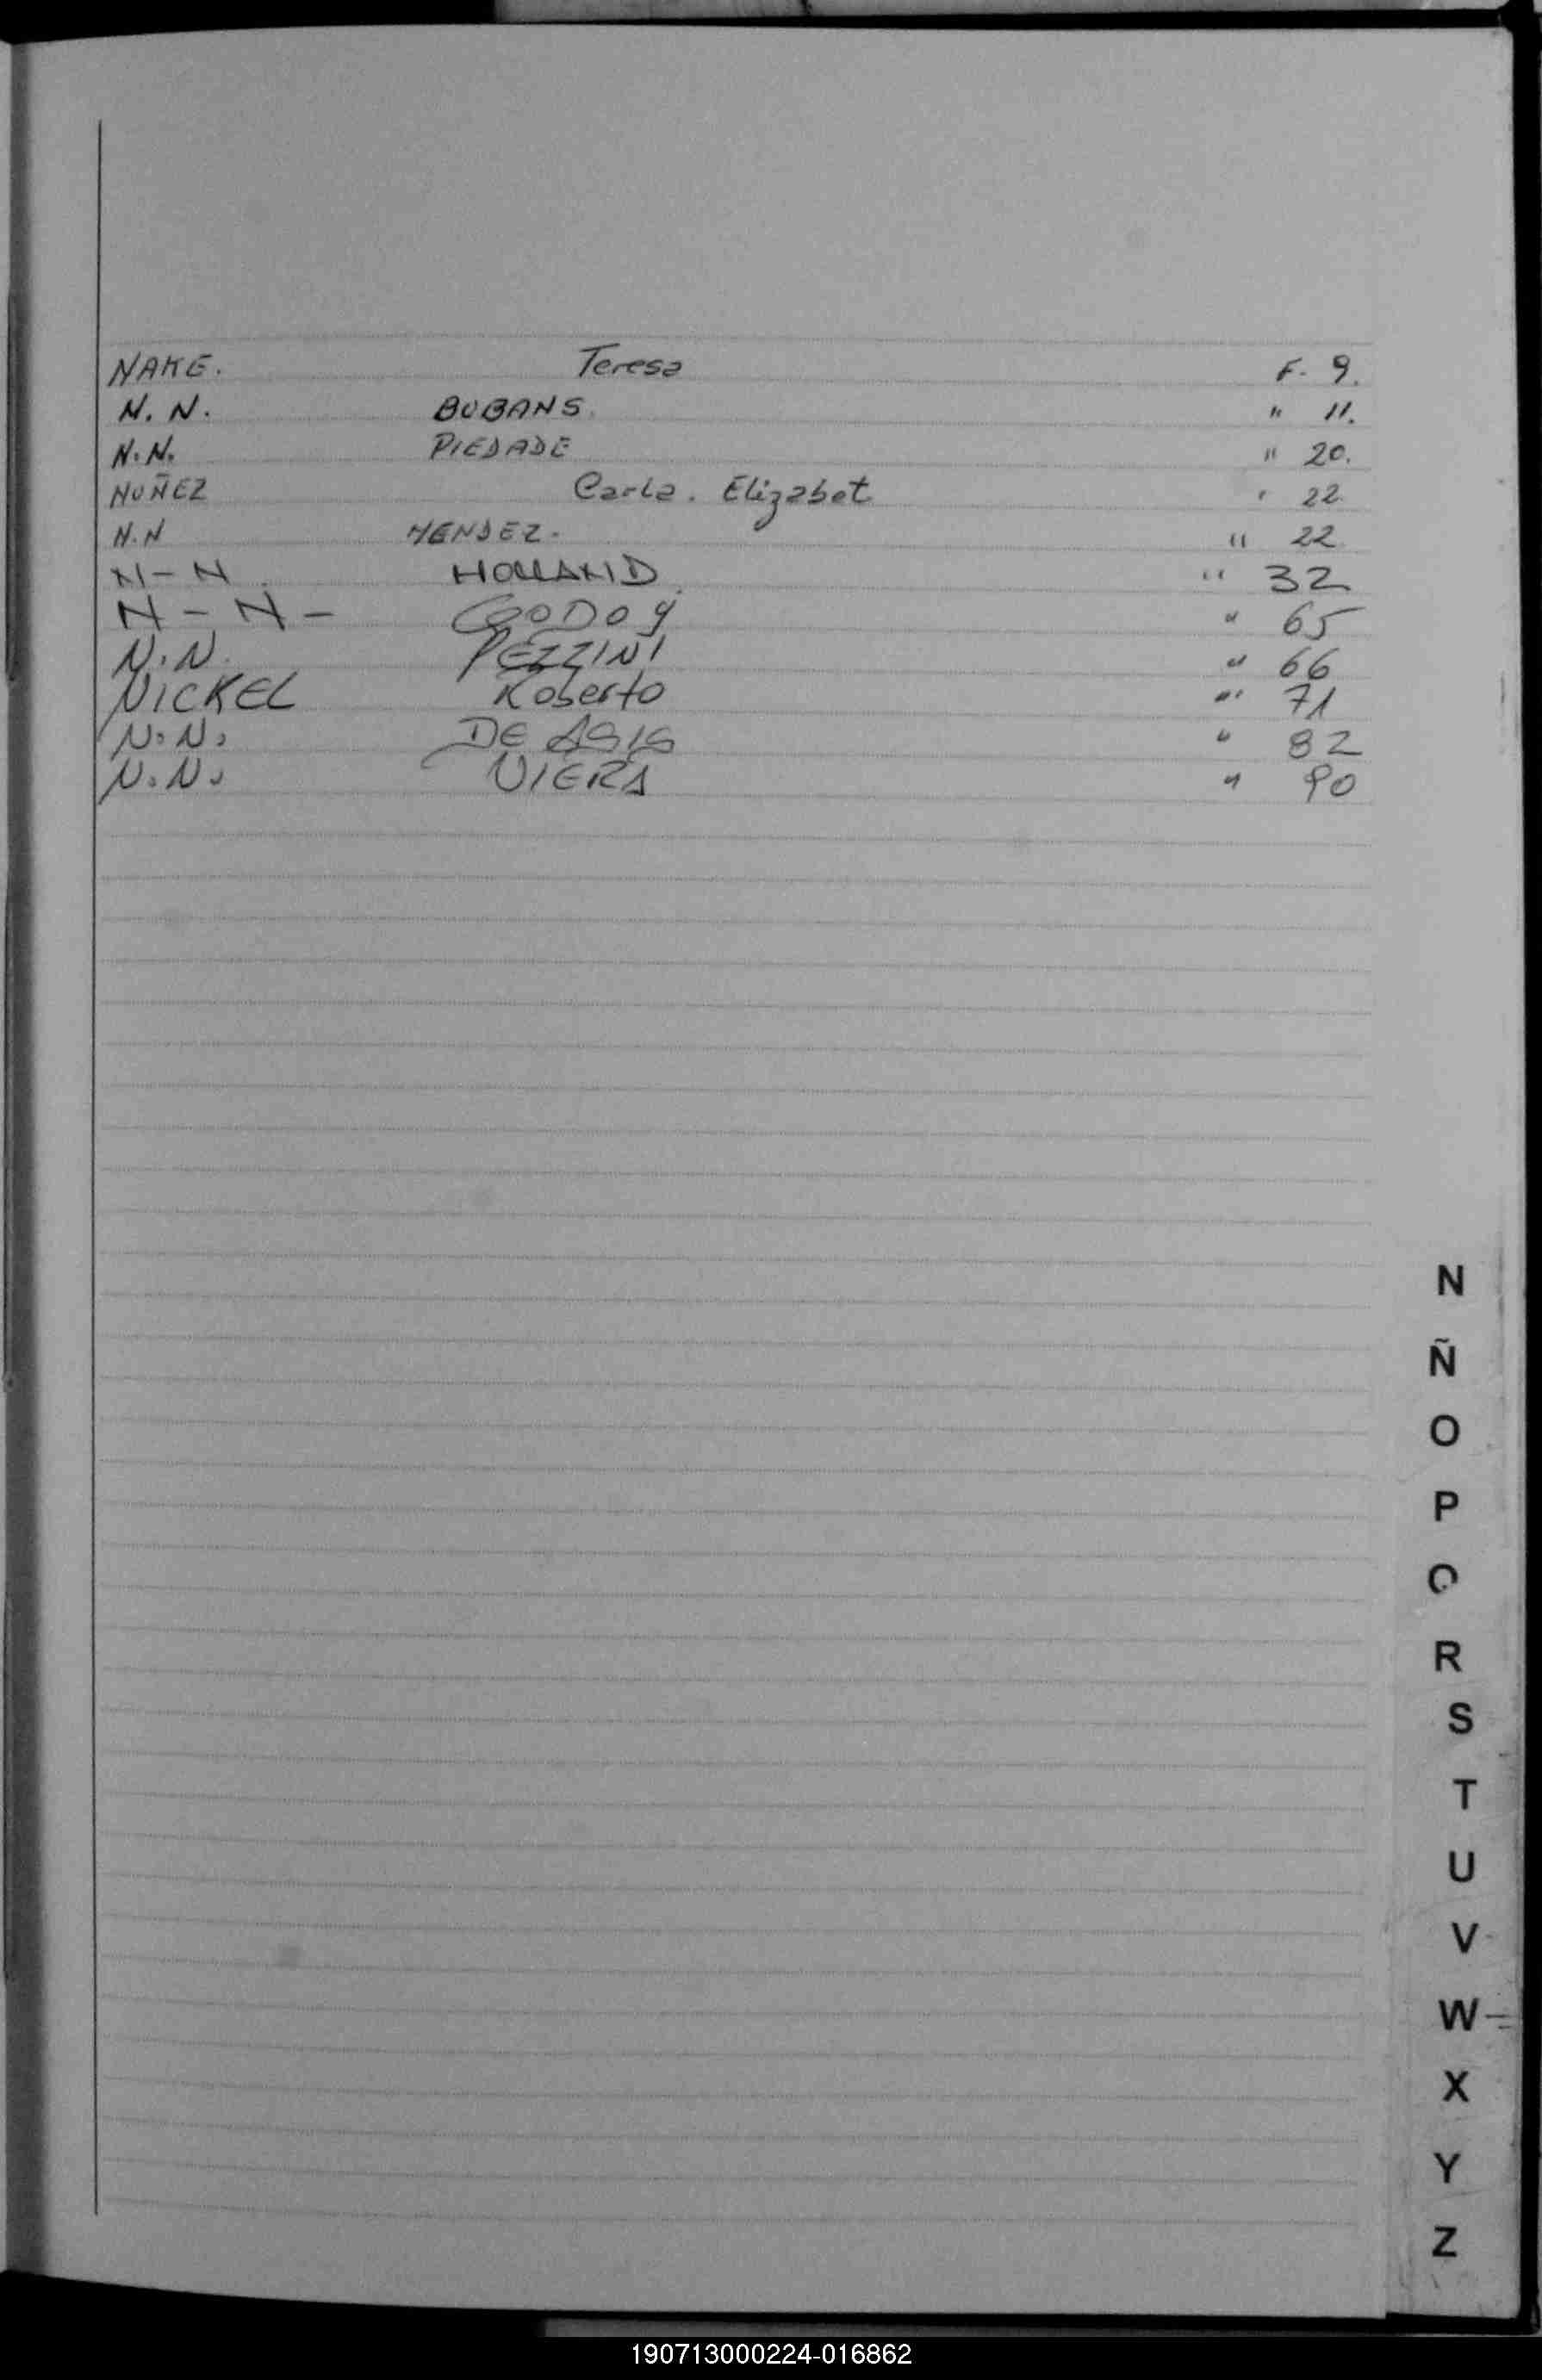 NAKE. Teresa F. 9.
N. N. BUBANS. " 11.
N. N. PIEDADE " 20.
NUÑEZ Carla. Elizabet ' 22.
N. N MENDEZ. " 22
N-N. HOLLAND " 32
N-N- GODOY " 65
N. N. PEZZINI " 66
NICKEL Roberto " 71
N. N. DE ASIS " 82
N. N. VIERA " 90
N
Ñ
O
P
Q
R
S
T
U
V
W
X
Y
Z
190713000224-016862